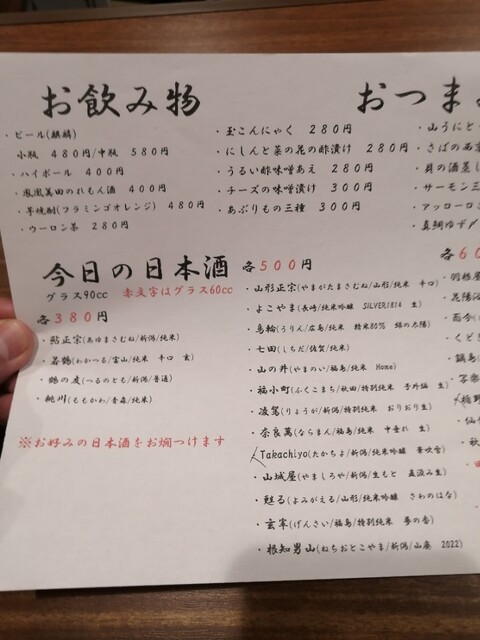 お飲み物
・ビール(麒麟)
小瓶 480円/中瓶 580円
・ハイボール 400円
・鳳凰美田のれもん酒 400円
・芋焼酎(フラミンゴオレンジ) 480円
・ウーロン茶 280円
おつま
・玉こんにゃく 280円
・にしんと菜の花の酢漬け 280円
・うるい酢味噌あえ 280円
・チーズの味噌漬け 300円
・あぶりもの三種 300円
・山うにと
・さばの西京
・貝の酒蒸し
・サーモン三
・アッローロン
・真鯛ゆず
今日の日本酒
グラス90cc 赤文字はグラス60cc
各380円
・鮎正宗(あゆまさむね/新潟/純米)
・若鶴(わかつる/富山/純米 辛口 玄)
・鶴の友(つるのとも/新潟/普通)
・桃川(ももかわ/青森/純米)
※お好みの日本酒をお燗つけます
各500円
・山形正宗(やまがたまさむね/山形/純米 辛口)
・よこやま(長崎/純米吟醸 SILVER1814 生)
・烏輪(うりん/広島/純米 精米80% 錦の太陽)
・七田(しちだ/佐賀/純米)
・山の井(やまのい/福島/純米 Home)
・福小町(ふくこまち/秋田/特別純米 号外編 生)
・凌駕(りょうが/新潟/特別純米 おりおり生)
・奈良萬(ならまん/福島/純米 中垂れ 生)
Takachiyo(たかちよ/新潟/純米吟醸 華吹雪)
・山城屋(やましろや/新潟/生もと 直汲み生)
・甦る(よみがえる/山形/純米吟醸 さわのはな)
・玄宰(げんさい/福島/特別純米 夢の香)
・根知男山(ねちおとこやま/新潟/山廃 2022)
各60
・羽根屋
・昆陽
・而今(
・くど
・鍋島(
・写楽
・仙
・秋